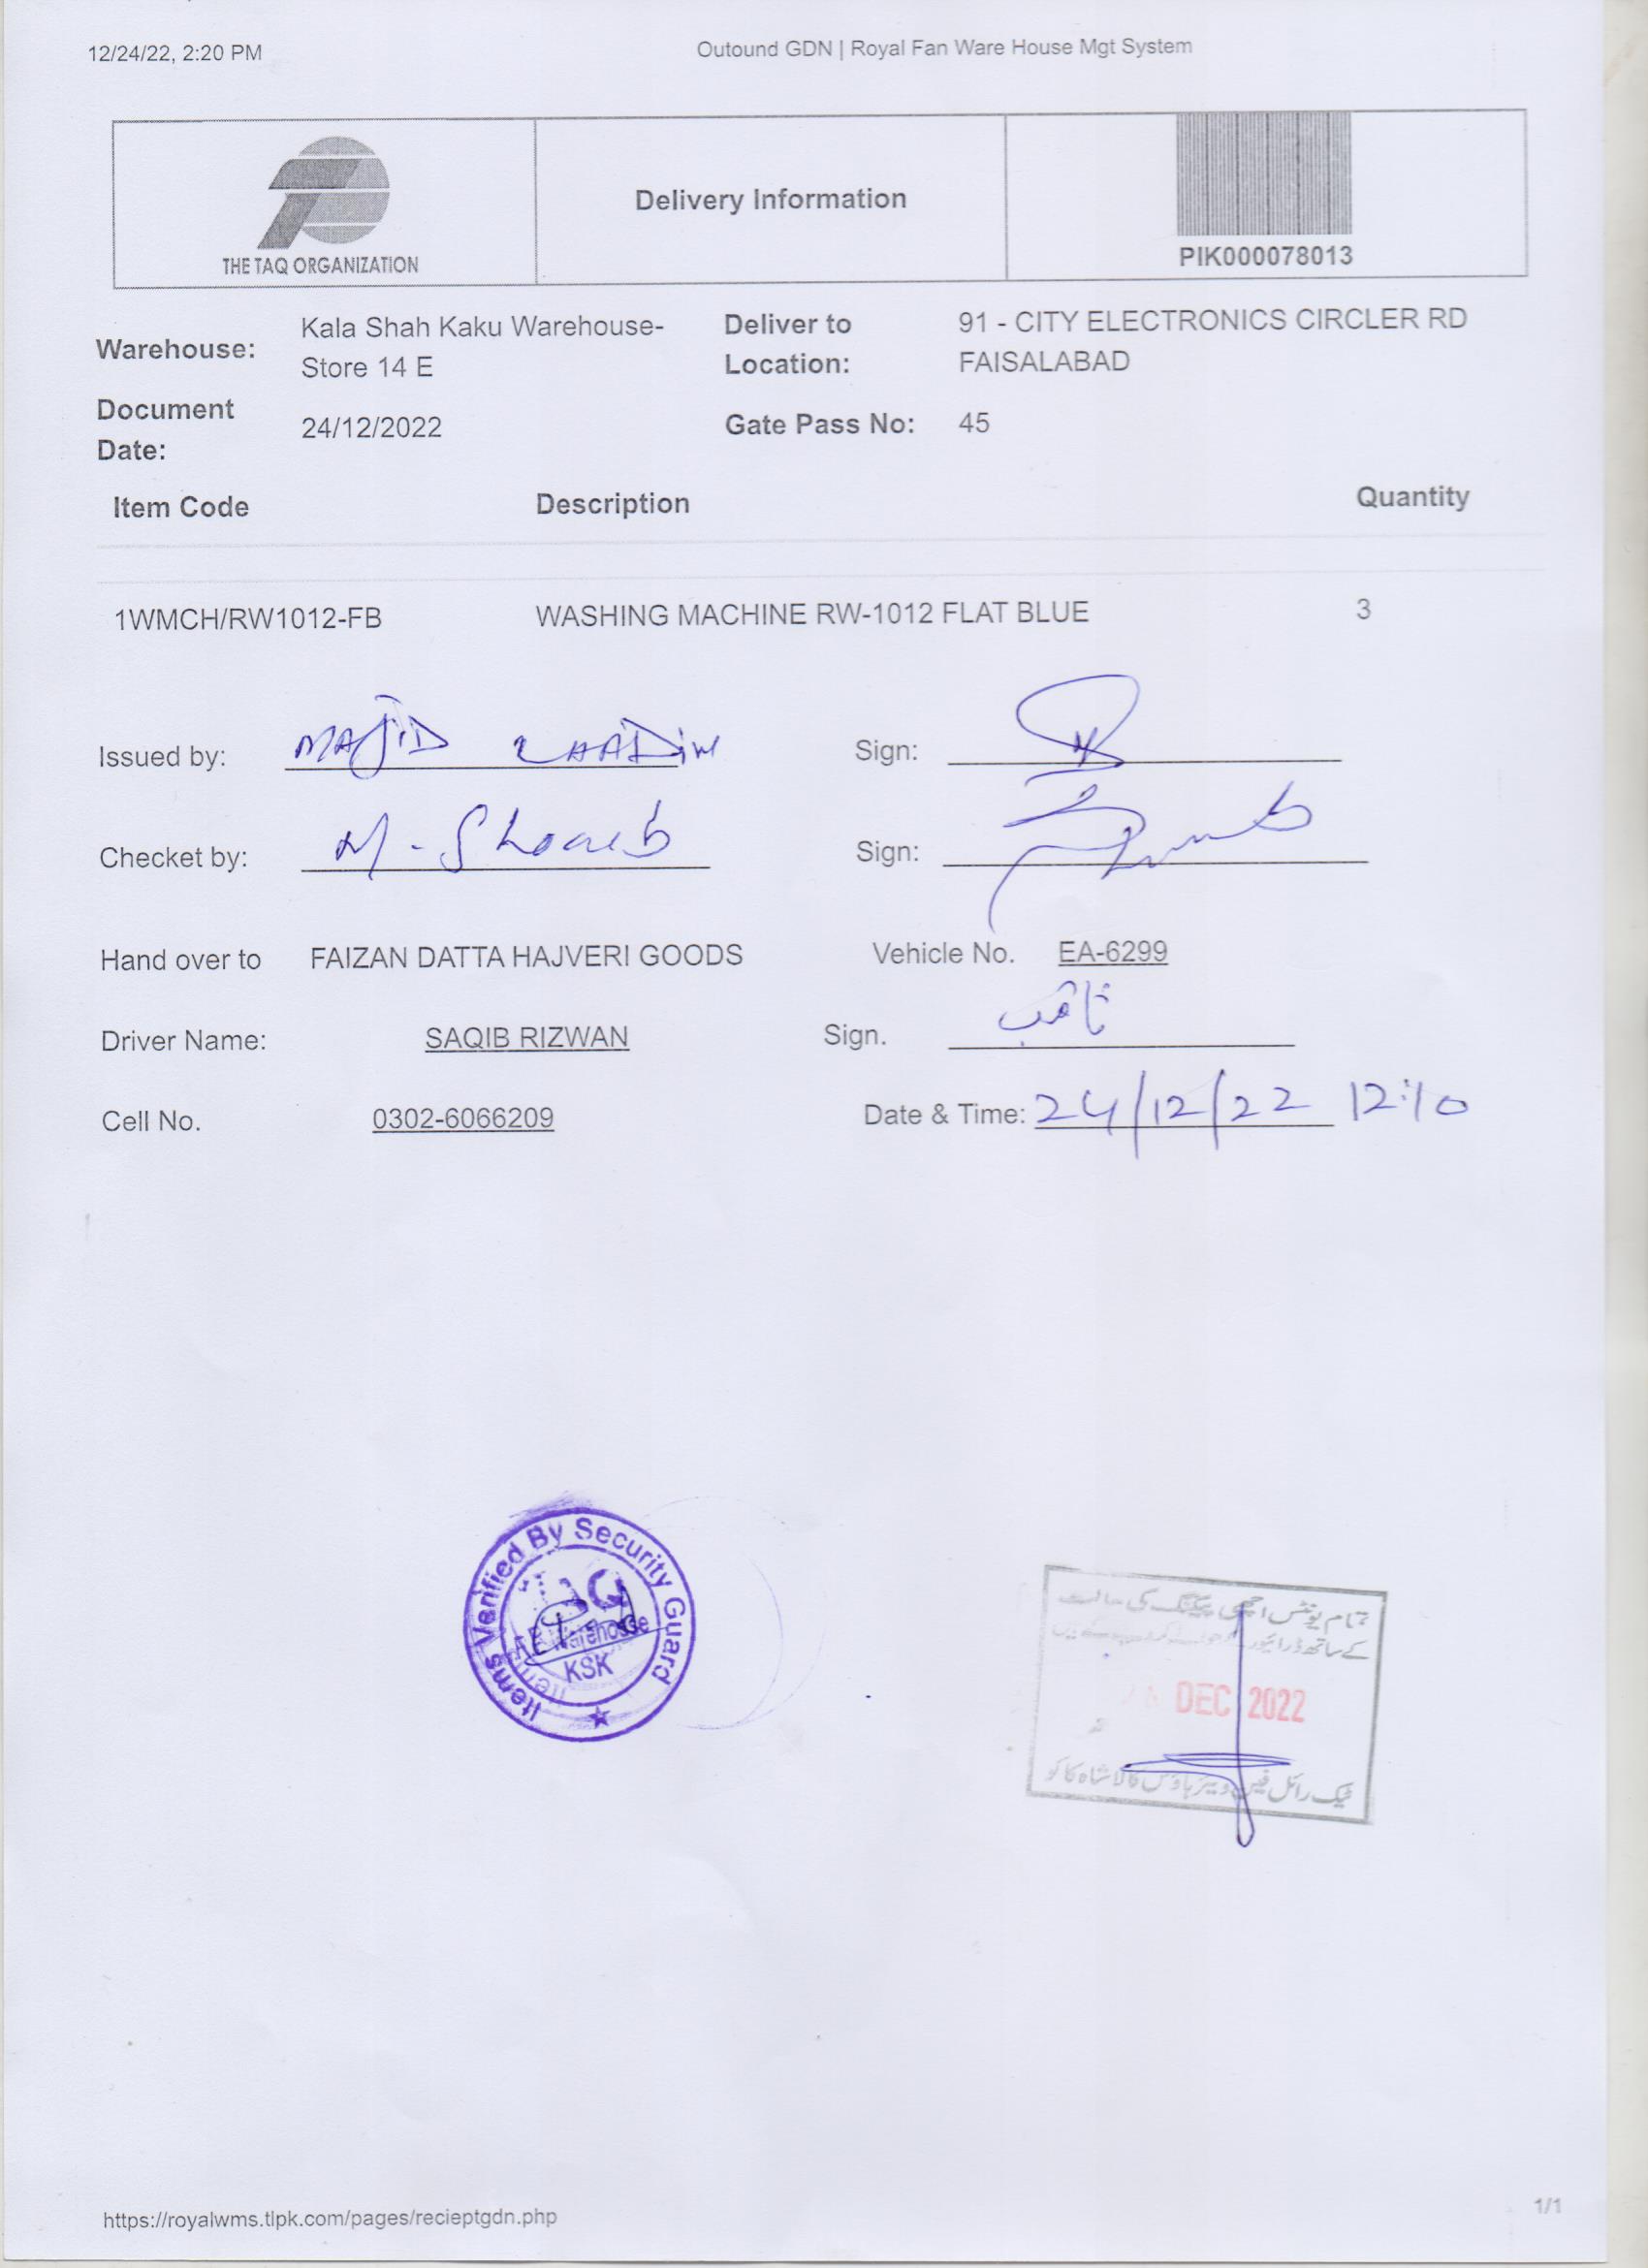 12/24/22, 2:20 PM
Outound GDN | Royal Fan Ware House Mgt System
THE TAQ ORGANIZATION
Delivery Information
PIK000078013
Warehouse: Kala Shah Kaku Warehouse-
Store 14 E
Deliver to Location: 91 - CITY ELECTRONICS CIRCLER RD
FAISALABAD
Document Date: 24/12/2022
Gate Pass No: 45
Item Code Description Quantity
1WMCH/RW1012-FB WASHING MACHINE RW-1012 FLAT BLUE 3
Issued by: MAJID Sign:
Checket by: M-Shoaib Sign:
Hand over to FAIZAN DATTA HAJVERI GOODS Vehicle No. EA-6299
Driver Name: SAQIB RIZWAN Sign. ثاقب
Cell No. 0302-6066209 Date & Time: 24/12/22 12:10
Items Verified By Security Guard
Warehosse
KSK
تمام یونٹس اچھی پیکنگ کی حالت
کے ساتھ ڈرائیور
DEC 2022
ٹیک رائل فین ویئر ہاؤس کالا شاہ کاکو
https://royalwms.tlpk.com/pages/recieptgdn.php
1/1